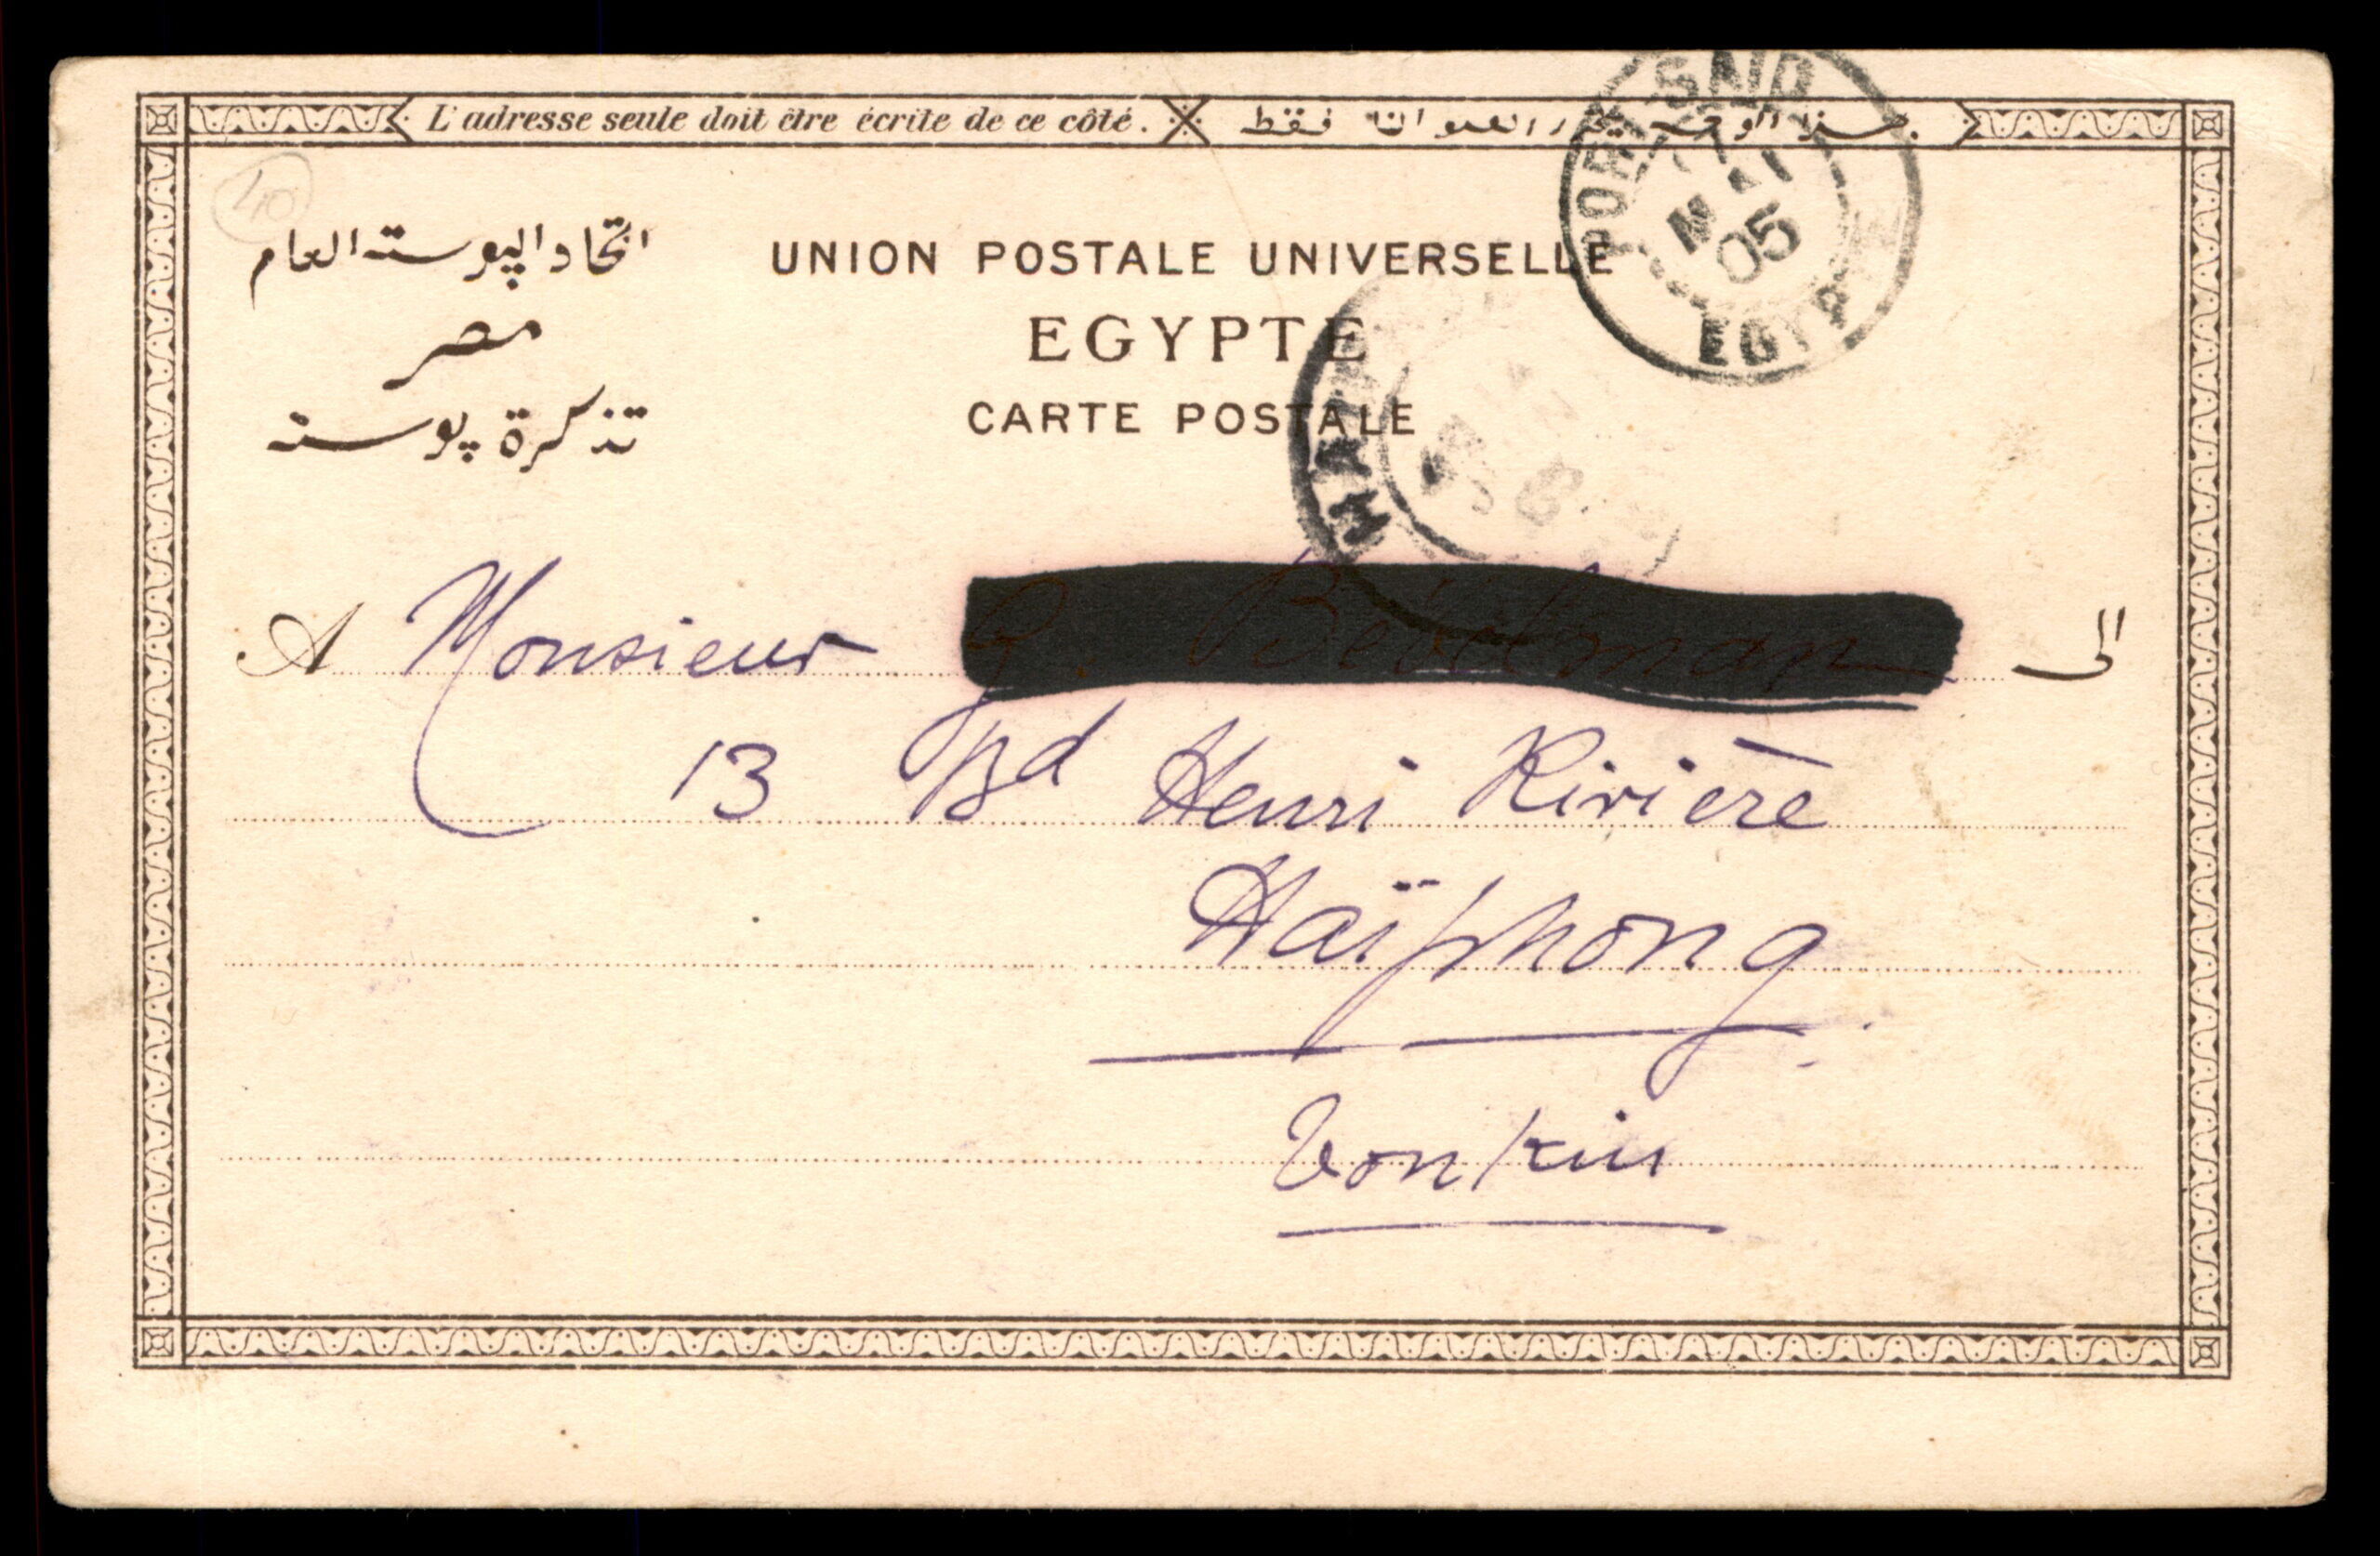 L'adresse seule doit être écrite de ce côté.
فقط
PORT-SAID
MAI
05
EGYP
40
اتحاد البوسته العام
مصر
تذكرة پوسته
UNION POSTALE UNIVERSELLE
EGYPTE
CARTE POSTALE
A Monsieur G. الى
13 Bd Henri Rivière
Haïphong
Tonkin